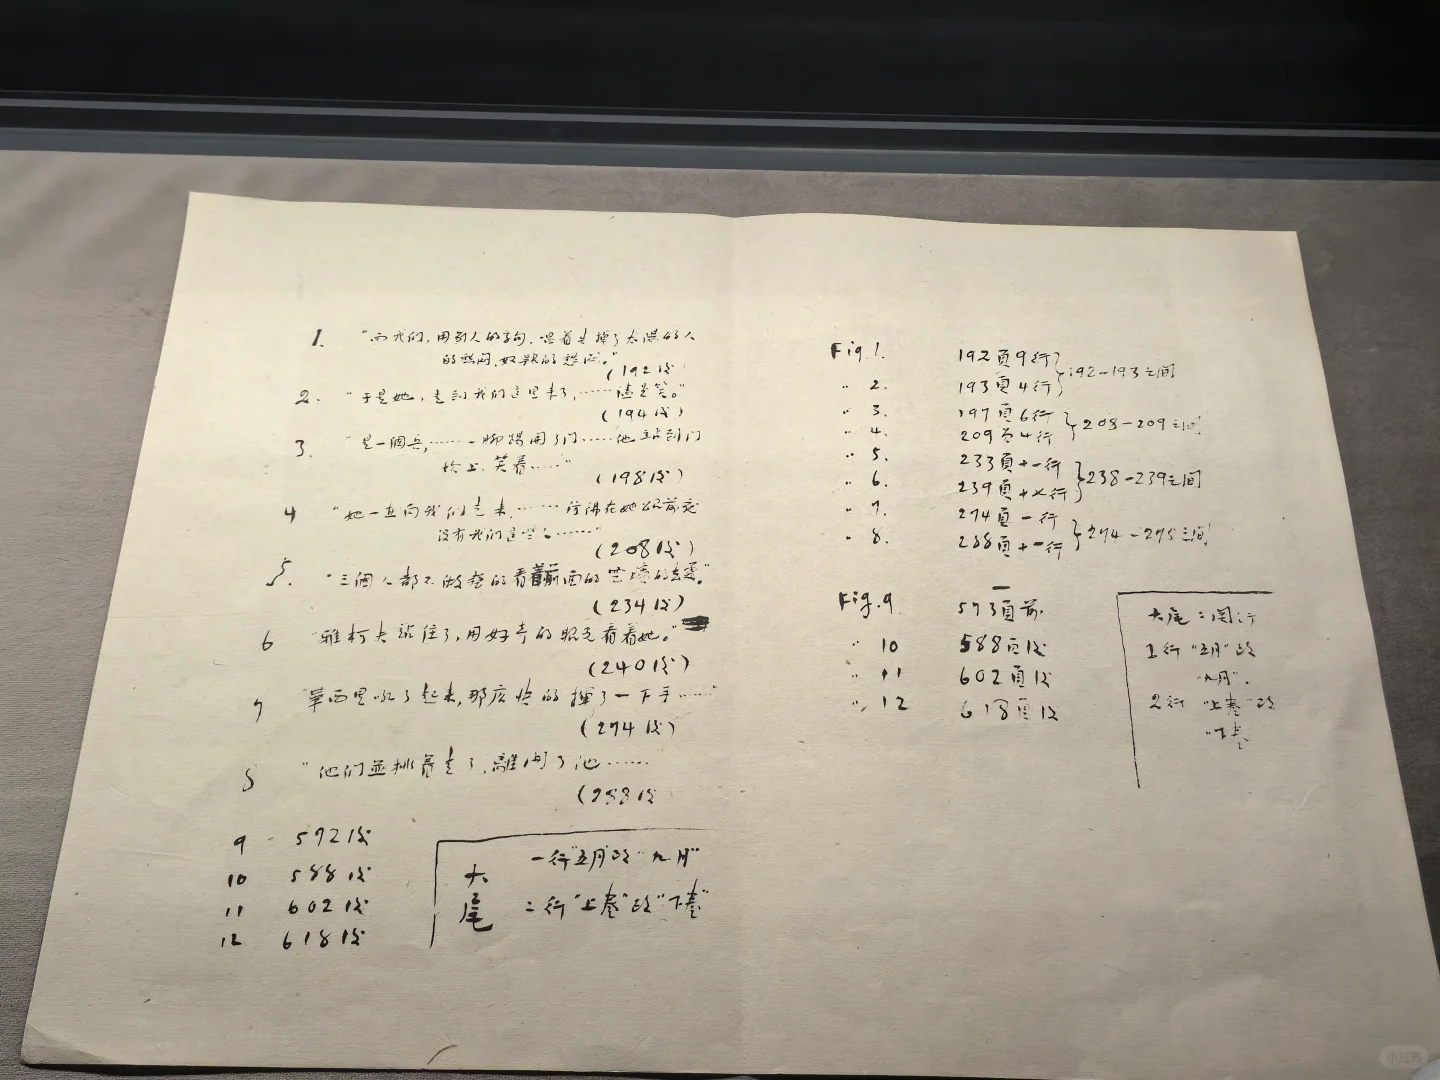 1. "而我们,用别人的字句,唱着失掉了太阳的人
的愁闷,奴隶的愁闷。"
(192后)
2. "于是她,走到我们这里来了,……尽是笑。"
(194后)
3. "是一個兵,……一脚踢開了门……他站到门
檻上,笑着……"
(198后)
4 "她一直向我们走来,……仿佛在她的前女
没有我们这些……"
(208后)
5. "三個人都不做声的看着前面的荒場的去處。"
(234后)
6 "雅柯夫站住了,用好奇的眼光看着她。"
(240后)
7 "華西里吼了起来,那麼怕的揮了一下手……"
(274后)
8 "他们並排着走了,離開了他……
(288后
9 592后
10 588后
11 602后
12 618后
大尾
一行"五月"改"九月"
二行"上卷"改"下卷"
Fig.1. 192頁9行
〃 2. 193頁4行
192-193之间
〃 3. 197頁6行
〃 4. 209頁4行
208-209之间
〃 5. 233頁十一行
〃 6. 239頁十乂行
238-239之间
〃 7. 274頁一行
〃 8. 288頁十一行
274-275之间
Fig.9 573頁前
〃 10 588頁后
〃 11 602頁后
〃 12 618頁后
大尾二圈行
1行"五月"改
"九月".
2行"上卷"改
"下卷"
小红书